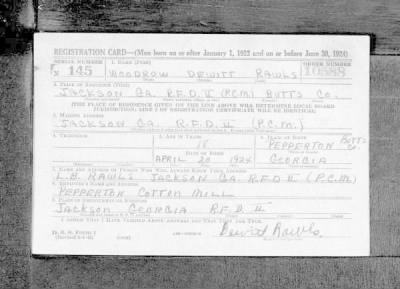 REGISTRATION CARD—(Men born on or after January 1, 1922 and on or before June 30, 1924)
SERIAL NUMBER 1. NAME (Print) ORDER NUMBER
145 WOODROW DEWITT RAWLS 10588
2. PLACE OF RESIDENCE (Print)
JACKSON GA. R.F.D. II (P.C.M.) BUTTS CO.
(THIS PLACE OF RESIDENCE GIVEN ON THE LINE ABOVE WILL DETERMINE LOCAL BOARD
JURISDICTION; LINE 2 OF REGISTRATION CERTIFICATE WILL BE IDENTICAL)
3. MAILING ADDRESS
JACKSON GA. R.F.D. II (P.C.M.)
4. TELEPHONE 5. AGE IN YEARS 6. PLACE OF BIRTH
18 PEPPERTON BUTTS CO
DATE OF BIRTH
APRIL 20 1924 GEORGIA
7. NAME AND ADDRESS OF PERSON WHO WILL ALWAYS KNOW YOUR ADDRESS
L.B. RAWLS JACKSON GA. R.F.D II (P.C.M)
8. EMPLOYER'S NAME AND ADDRESS
PEPPERTON COTTON MILL
9. PLACE OF EMPLOYMENT OR BUSINESS
JACKSON GEORGIA R.F.D. II
I AFFIRM THAT I HAVE VERIFIED ABOVE ANSWERS AND THAT THEY ARE TRUE.
D. S. S. Form 1
Dewitt Rawls